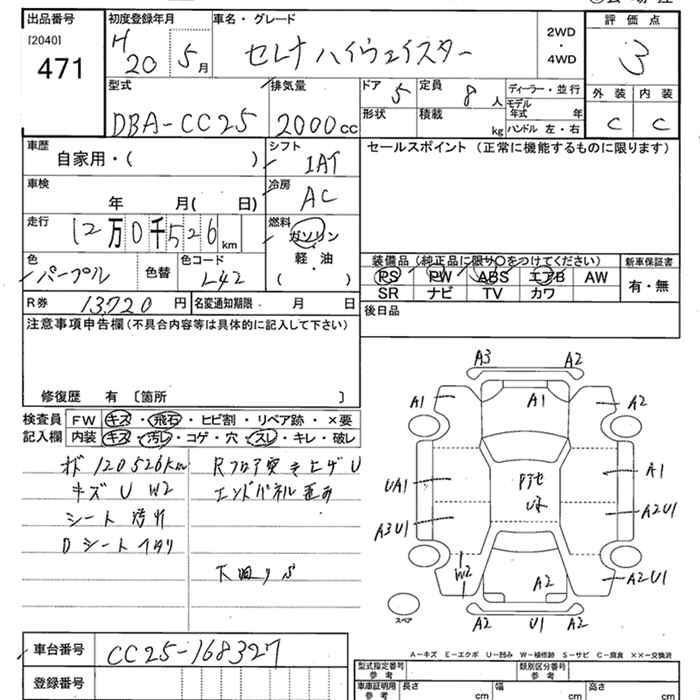 出品番号
[2040]
471
初度登録年月
H 20 5月
車名・グレード
セレナ ハイウェイスター
2WD
・
4WD
評価点
3
型式
DBA-CC25
排気量
2000cc
ドア 5
定員 8人
形状
積載 kg
ディーラー・並行
モデル年式 年
ハンドル 左・右
外装 内装
C C
車歴
自家用・( )
シフト
IAT
セールスポイント(正常に機能するものに限ります)
車検
年 月( 日)
冷房
AC
走行
12万0千526km
燃料
ガソリン
軽・油
( )
色
パープル
色替
色コード
L42
装備品(純正品に限り○をつけてください)
PS PW ABS エアB AW
SR ナビ TV カワ
新車保証書
有・無
R券 13,720円
名変通知期限 月 日
後日品
注意事項申告欄(不具合内容等は具体的に記入して下さい)
修復歴 有 〔箇所 〕
検査員記入欄
FW キズ・飛石・ヒビ割・リペア跡・×要
内装 キズ・汚レ・コゲ・穴・スレ・キレ・破レ
120526km
キズ U W2
シート 汚れ
Dシート
Rフロア突き上げ U
エンドパネル歪み
下回り S
A3 A2
A1 A1 A2
UA1 A1
A3U1 A2U1
W2 A2 A2U1
A2 U1 A2
スペア
A-キズ E-エクボ U-凹み W-補修跡 S-サビ C-腐食 ××-交換済
車台番号
CC25-168327
登録番号
型式指定番号 参考
類別区分番号 参考
車車証明用 参考
長さ cm
幅 cm
高さ cm